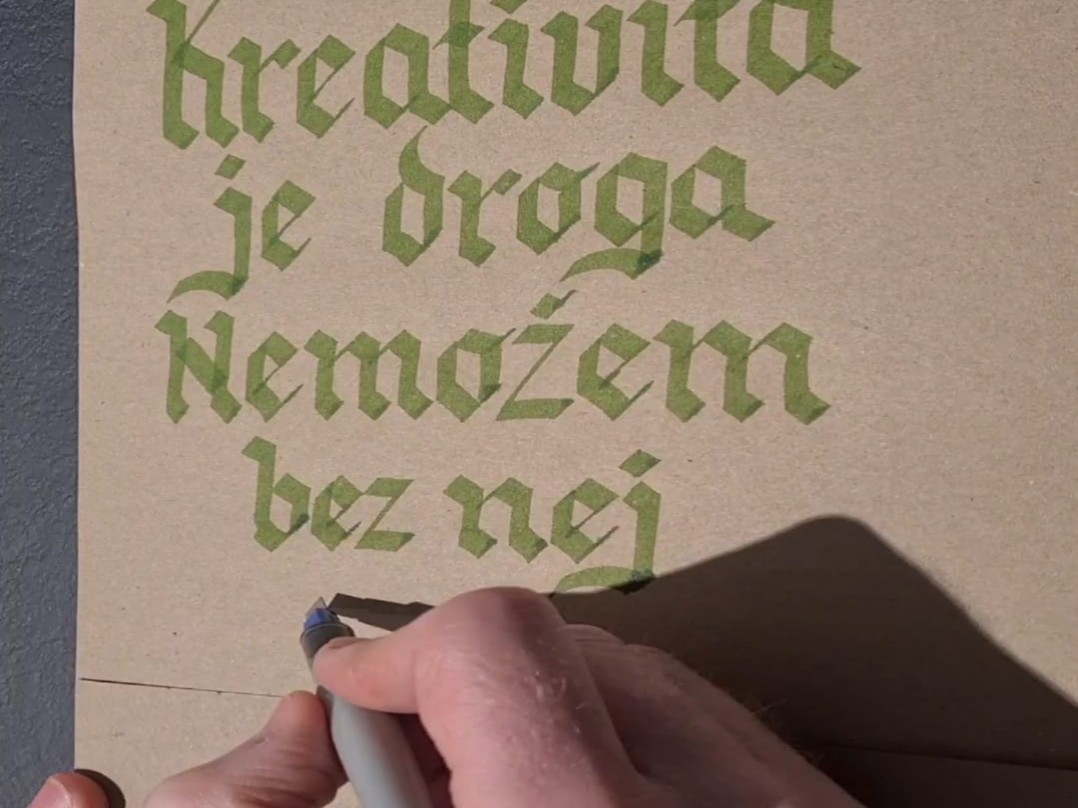 kreativita
je droga
Nemožem
bez nej